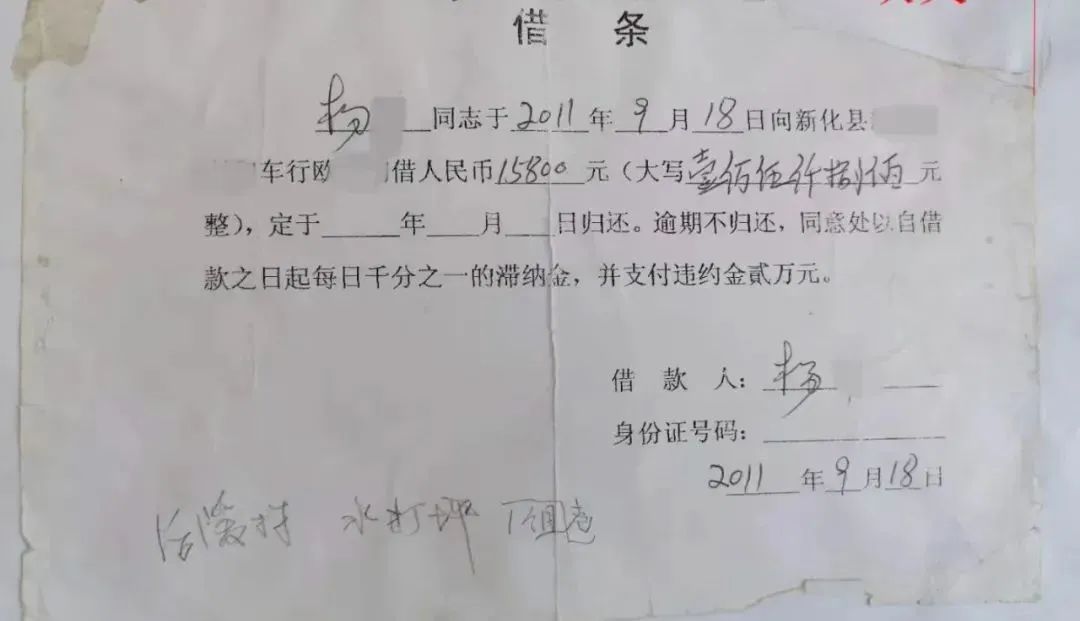 借 条
杨 同志于2011年9月18日向新化县
车行欧 借人民币15800元（大写壹 任仟捌佰元
整），定于______年____月____日归还。逾期不归还，同意处以自借
款之日起每日千分之一的滞纳金，并支付违约金贰万元。
借 款 人：杨
身份证号码：
2011年9月18日
水打坪